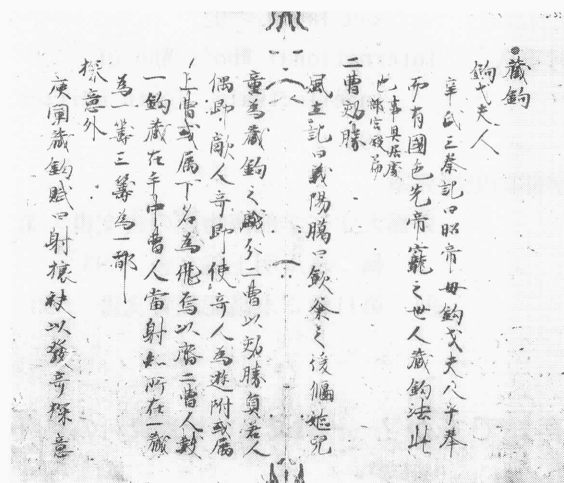 藏鉤
鉤弋夫人
辛氏三秦記曰昭帝母鉤弋夫人手拳
而有國色先帝寵之世人藏鉤法此
也事具居處
部宮殿篇
二曹効勝
風土記曰義陽臈日飲祭之後傴嫗兒
童為藏鉤之戲分二曹以効勝負若人
偶即敵人奇即使奇人為遊附或属
上曹或属下名為飛鳥以齊二曹人數
一鉤藏在手中曹人當射知所在一藏
為籌三籌為一都
探意外
庾闡藏鉤賦曰射攘袂以發奇探意